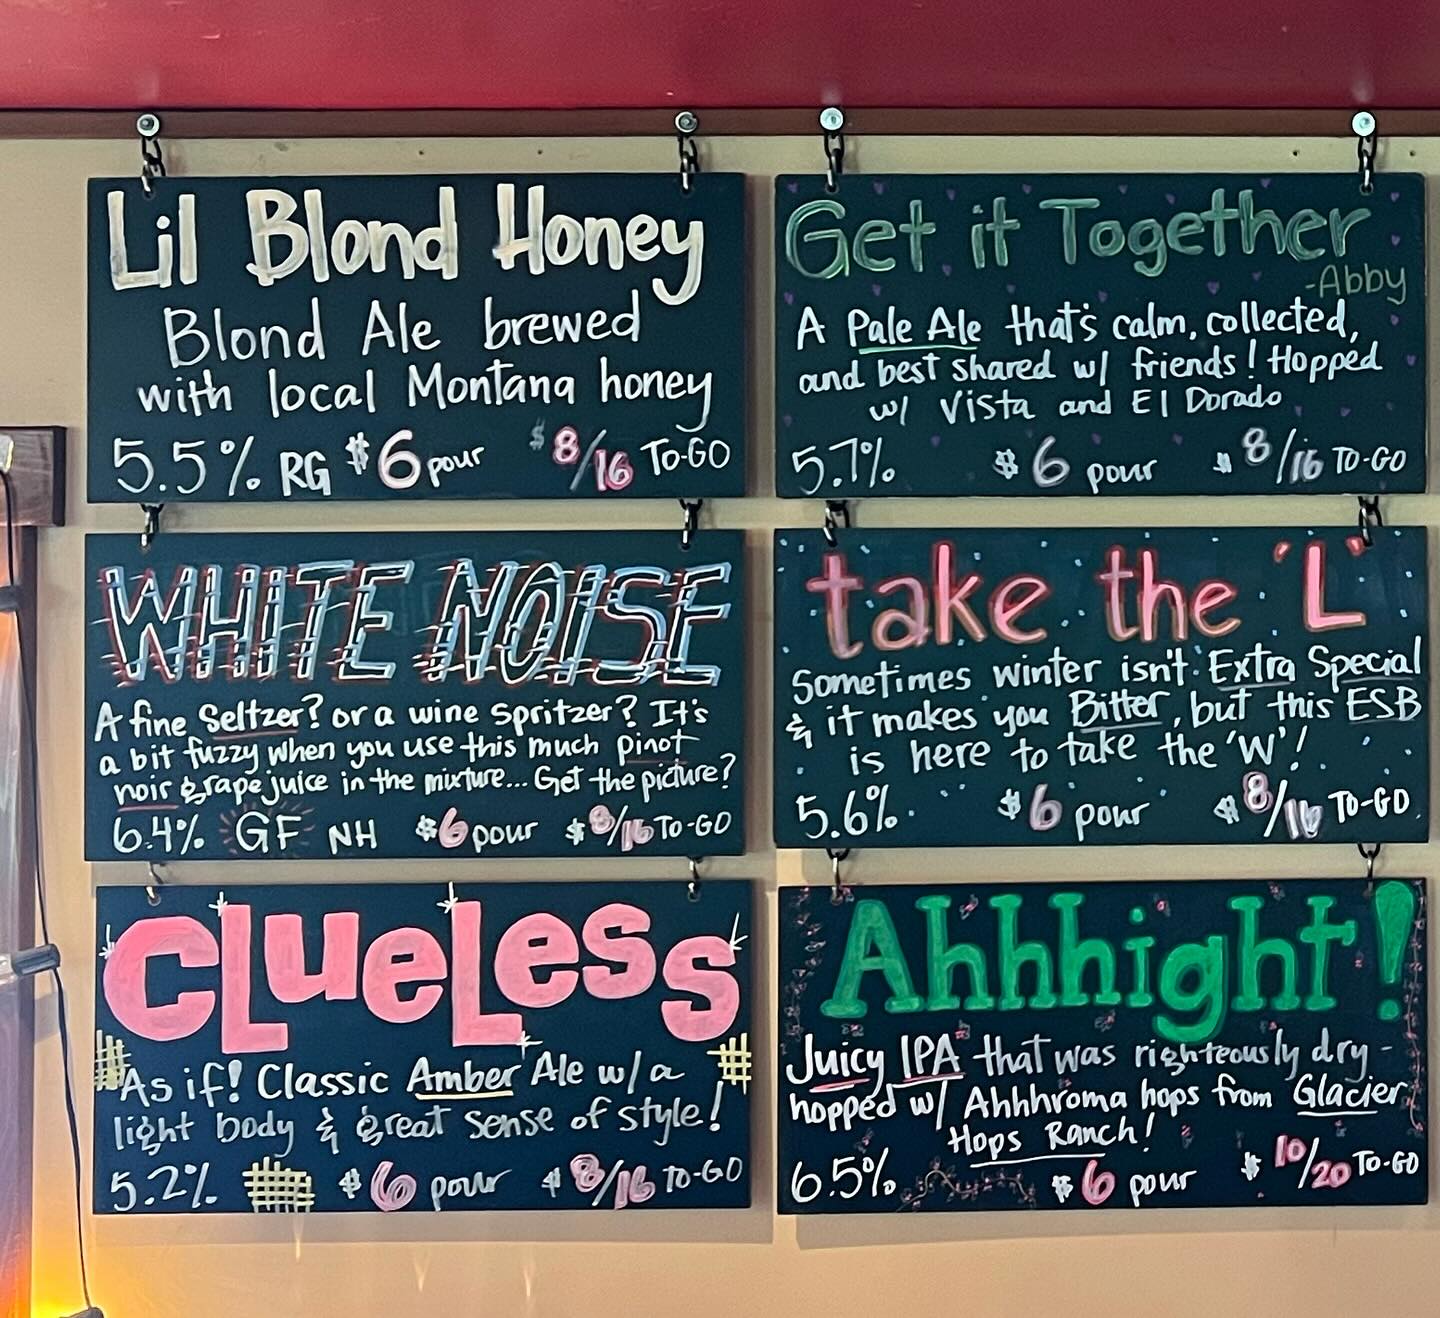 Lil Blond Honey
Blond Ale brewed
with local Montana honey
5.5% RG $6 pour $8/16 TO-GO
WHITE NOISE
A fine Seltzer? or a wine spritzer? It's
a bit fuzzy when you use this much pinot
noir grape juice in the mixture... Get the picture?
6.4% GF NH $6 pour $8/16 TO-GO
CLueLess
As if! Classic Amber Ale w/a
light body & great sense of style!
5.2% $6 pour $8/16 TO-GO
Get it Together
-Abby
A Pale Ale that's calm, collected,
and best shared w/ friends! Hopped
w/ Vista and El Dorado
5.7% $6 pour $8/16 TO-GO
take the 'L'
Sometimes winter isn't Extra Special
& it makes you Bitter, but this ESB
is here to take the 'W'!
5.6% $6 pour $8/16 TO-GO
Ahhhight!
Juicy IPA that was righteously dry-
hopped w/ Ahhhroma hops from Glacier
Hops Ranch!
6.5% $6 pour $10/20 TO-GO